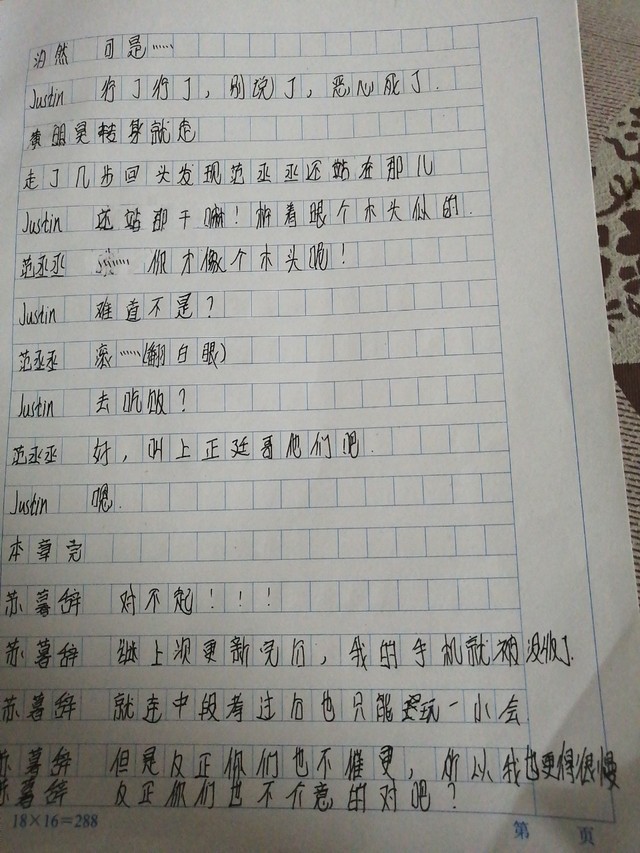 泊然 可是……
Justin 行了行了，别说了，恶心死了.
黄明昊转身就走
走了几步回头发现范丞丞还站在那儿
Justin 还站那干嘛！桩着跟个木头似的.
范丞丞 …… 你才像个木头呢！
Justin 难道不是？
范丞丞 滚……(翻白眼)
Justin 去吃饭？
范丞丞 好，叫上正廷哥他们吧.
Justin 嗯.
本章完
苏暮辞 对不起！！！
苏暮辞 继上次更新完后，我的手机就被没收了.
苏暮辞 就连中段考过后也只能玩一小会
苏暮辞 但是反正你们也不催更，所以我也更得很慢
苏暮辞 反正你们也不介意的对吧？
18×16=288
第 页